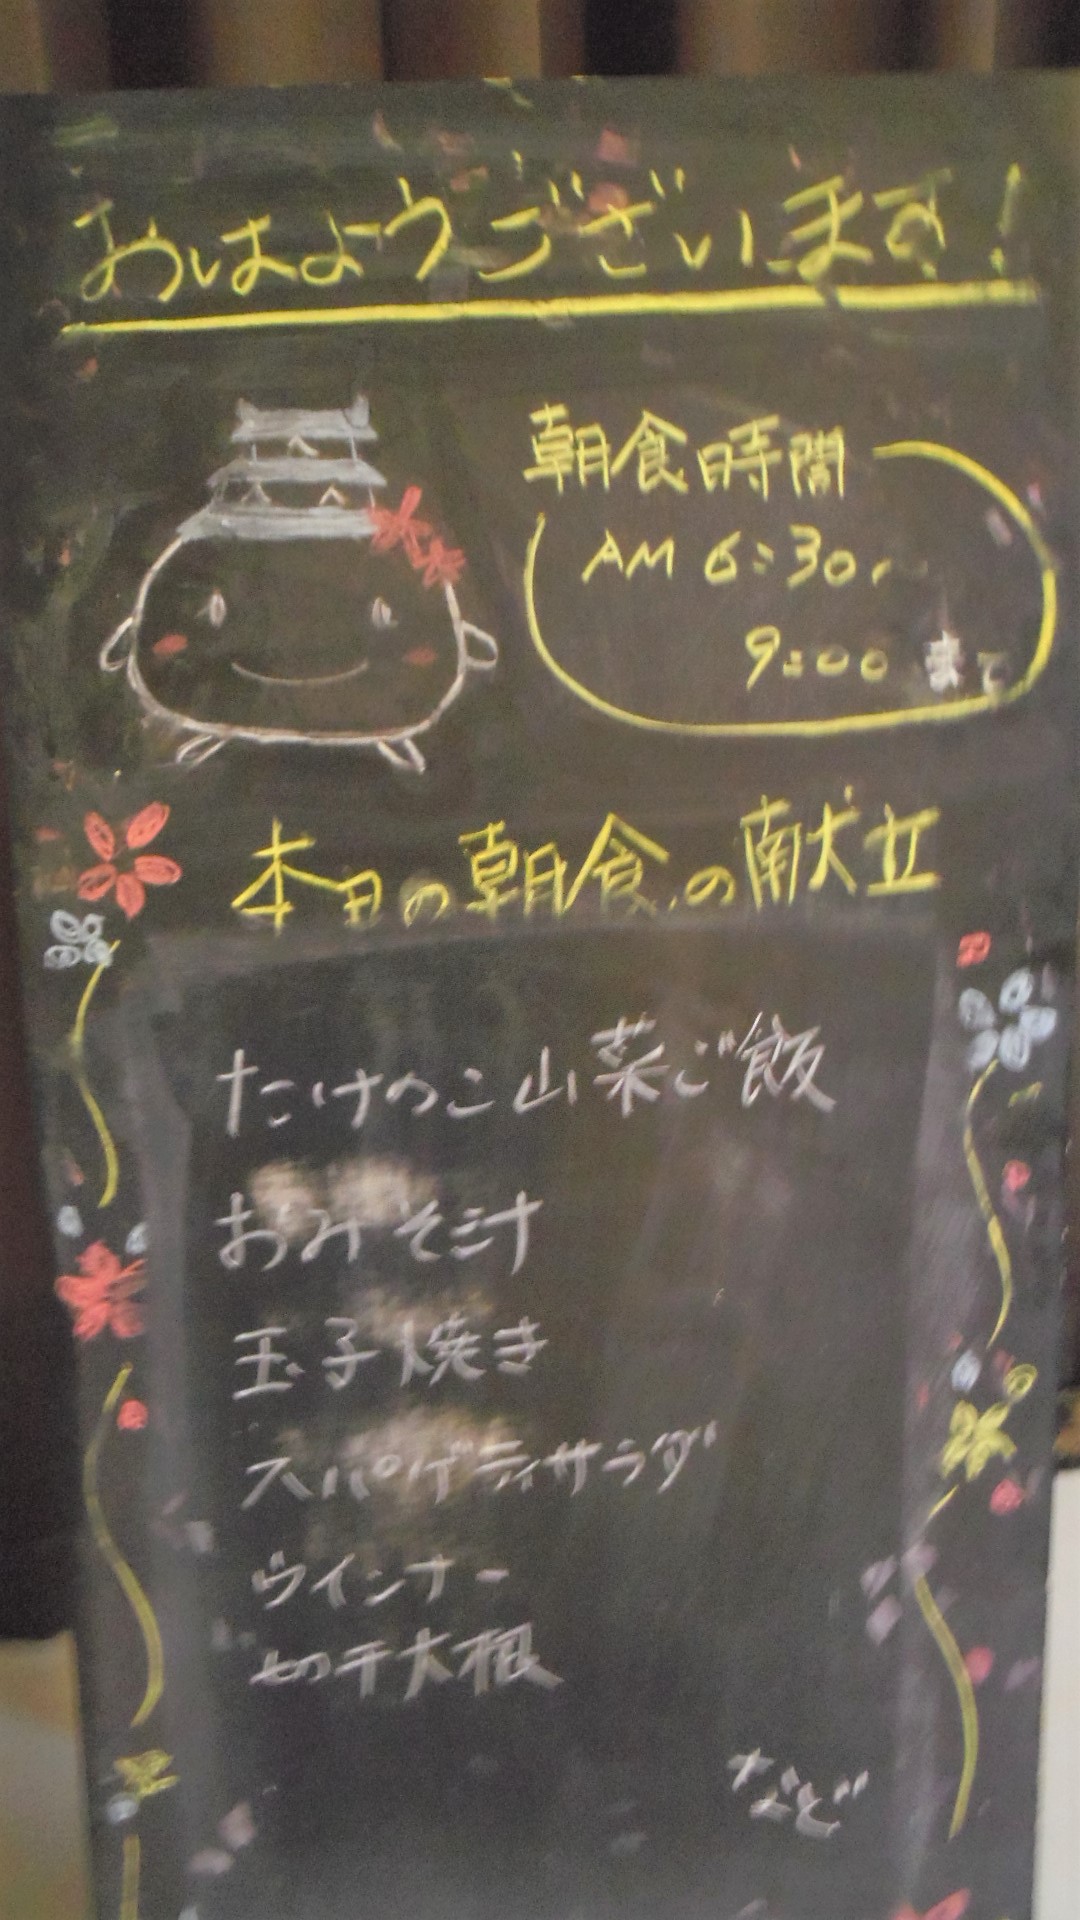 おはようございます!
朝食時間
AM 6:30~
9:00 まで
本日の朝食の献立
たけのこ山菜ご飯
おみそ汁
玉子焼き
スパゲティサラダ
ウインナー
切干大根
など